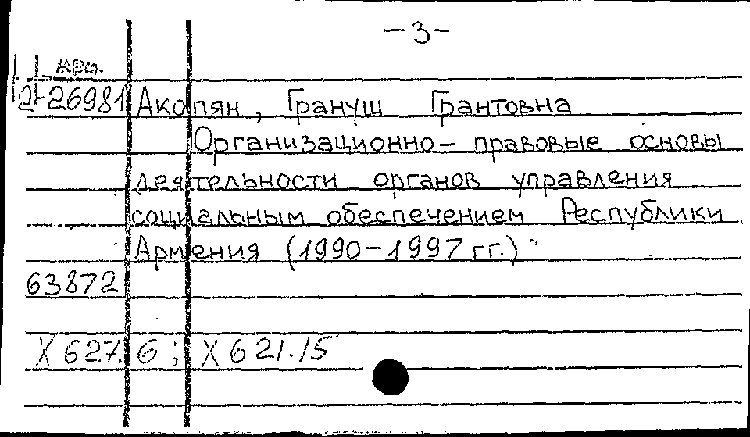 -3-
арм.
2-26981 Акопян, Грануш Грантовна
Организационно-правовые основы
деятельности органов управления
социальным обеспечением Республики
Армения (1990-1997 гг.)
63872
X 627.6; X 621.15